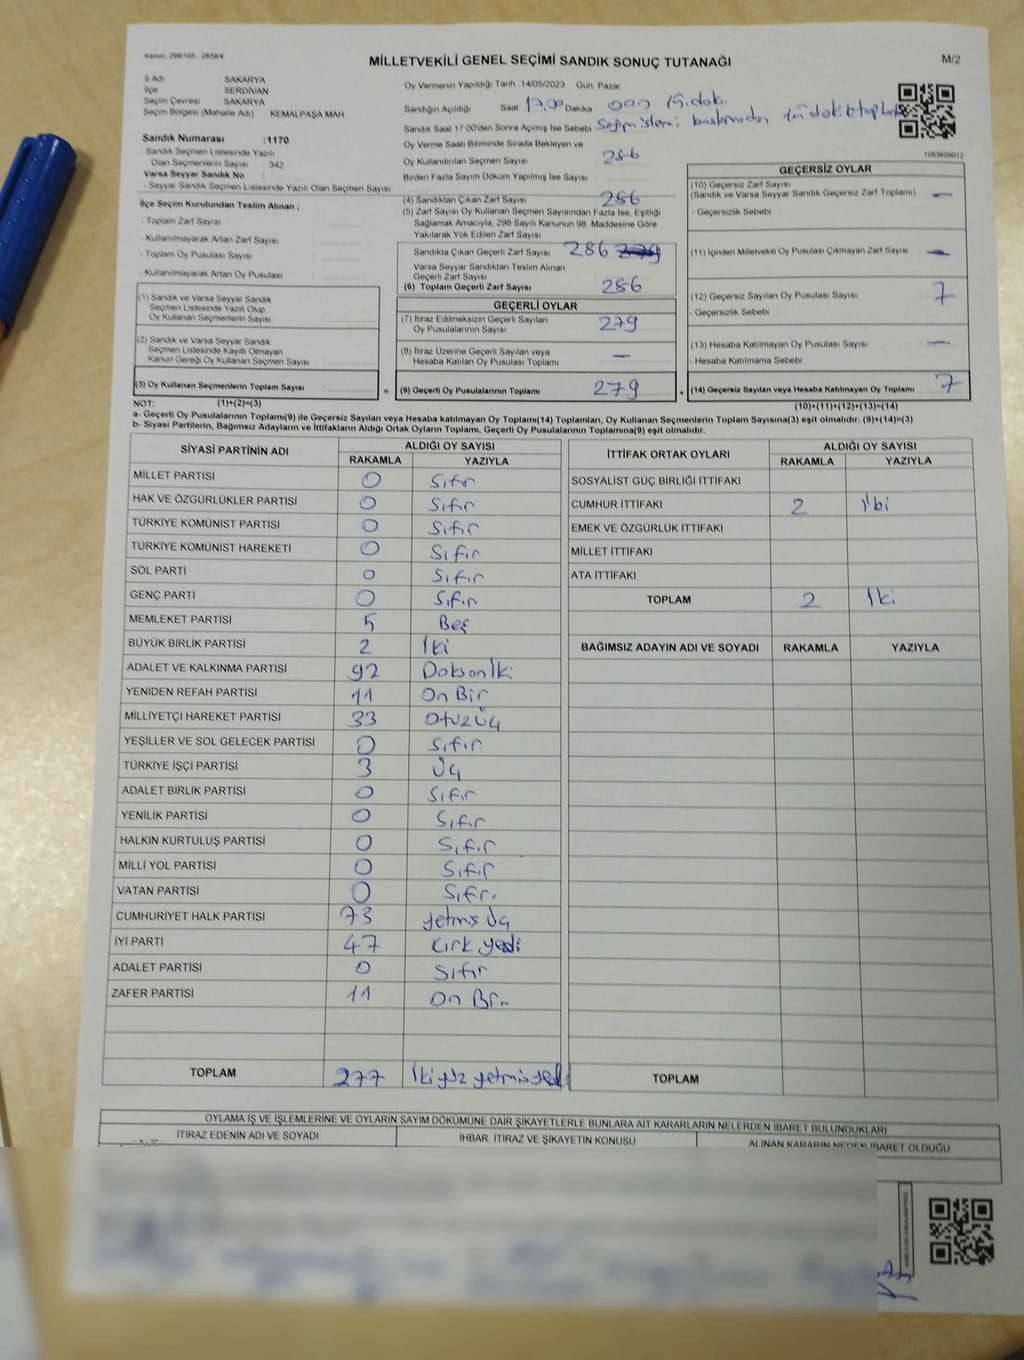 Kanun, 298/105 , 2839/4
MİLLETVEKİLİ GENEL SEÇİMİ SANDIK SONUÇ TUTANAĞI
M/2
İl Adı : SAKARYA
İlçe : SERDİVAN
Seçim Çevresi : SAKARYA
Seçim Bölgesi (Mahalle Adı) : KEMALPAŞA MAH.
Sandık Numarası :1170
- Sandık Seçmen Listesinde Yazılı
Olan Seçmenlerin Sayısı : 342
Varsa Seyyar Sandık No :
- Seyyar Sandık Seçmen Listesinde Yazılı Olan Seçmen Sayısı:
Oy Vermenin Yapıldığı Tarih :14/05/2023 Gün: Pazar
Sandığın Açıldığı Saat 17.00 Dakika
Sandık Saat 17:00'den Sonra Açılmış İse Sebebi
Oy Verme Saati Bitiminde Sırada Bekleyen ve
Oy Kullandırılan Seçmen Sayısı 286
Birden Fazla Sayım Döküm Yapılmış İse Sayısı
1083609012
İlçe Seçim Kurulundan Teslim Alınan ;
- Toplam Zarf Sayısı
- Kullanılmayarak Artan Zarf Sayısı
- Toplam Oy Pusulası Sayısı
- Kullanılmayarak Artan Oy Pusulası
(1) Sandık ve Varsa Seyyar Sandık
Seçmen Listesinde Yazılı Olup
Oy Kullanan Seçmenlerin Sayısı
(2) Sandık ve Varsa Seyyar Sandık
Seçmen Listesinde Kayıtlı Olmayan
Kanun Gereği Oy Kullanan Seçmen Sayısı
(3) Oy Kullanan Seçmenlerin Toplam Sayısı =
(4) Sandıktan Çıkan Zarf Sayısı 286
(5) Zarf Sayısı Oy Kullanan Seçmen Sayısından Fazla İse, Eşitliği
Sağlamak Amacıyla, 298 Sayılı Kanunun 98. Maddesine Göre
Yakılarak Yok Edilen Zarf Sayısı
Sandıkta Çıkan Geçerli Zarf Sayısı 286
Varsa Seyyar Sandıktan Teslim Alınan
Geçerli Zarf Sayısı
(6) Toplam Geçerli Zarf Sayısı 286
GEÇERLİ OYLAR
(7) İtiraz Edilmeksizin Geçerli Sayılan
Oy Pusulalarının Sayısı 279
(8) İtiraz Üzerine Geçerli Sayılan veya
Hesaba Katılan Oy Pusulası Toplamı —
(9) Geçerli Oy Pusulalarının Toplamı 279 +
GEÇERSİZ OYLAR
(10) Geçersiz Zarf Sayısı
(Sandık ve Varsa Seyyar Sandık Geçersiz Zarf Toplamı) —
- Geçersizlik Sebebi :
(11) İçinden Milletvekili Oy Pusulası Çıkmayan Zarf Sayısı —
(12) Geçersiz Sayılan Oy Pusulası Sayısı 7
- Geçersizlik Sebebi :
(13) Hesaba Katılmayan Oy Pusulası Sayısı —
- Hesaba Katılmama Sebebi :
(14) Geçersiz Sayılan veya Hesaba Katılmayan Oy Toplamı 7
NOT: (1)+(2)=(3)
(10)+(11)+(12)+(13)=(14)
a- Geçerli Oy Pusulalarının Toplamı(9) ile Geçersiz Sayılan veya Hesaba katılmayan Oy Toplamı(14) Toplamları, Oy Kullanan Seçmenlerin Toplam Sayısına(3) eşit olmalıdır. (9)+(14)=(3)
b- Siyasi Partilerin, Bağımsız Adayların ve İttifakların Aldığı Ortak Oyların Toplamı, Geçerli Oy Pusulalarının Toplamına(9) eşit olmalıdır.
SİYASİ PARTİNİN ADI ALDIĞI OY SAYISI
RAKAMLA YAZIYLA
MİLLET PARTİSİ 0 Sıfır
HAK VE ÖZGÜRLÜKLER PARTİSİ 0 Sıfır
TÜRKİYE KOMÜNİST PARTİSİ 0 Sıfır
TÜRKİYE KOMÜNİST HAREKETİ 0 Sıfır
SOL PARTİ 0 Sıfır
GENÇ PARTİ 0 Sıfır
MEMLEKET PARTİSİ 5 Beş
BÜYÜK BİRLİK PARTİSİ 2 İki
ADALET VE KALKINMA PARTİSİ 92 Doksan İki
YENİDEN REFAH PARTİSİ 11 On Bir
MİLLİYETÇİ HAREKET PARTİSİ 33 Otuz Üç
YEŞİLLER VE SOL GELECEK PARTİSİ 0 Sıfır
TÜRKİYE İŞÇİ PARTİSİ 3 Üç
ADALET BİRLİK PARTİSİ 0 Sıfır
YENİLİK PARTİSİ 0 Sıfır
HALKIN KURTULUŞ PARTİSİ 0 Sıfır
MİLLİ YOL PARTİSİ 0 Sıfır
VATAN PARTİSİ 0 Sıfır
CUMHURİYET HALK PARTİSİ 73 yetmiş Üç
İYİ PARTİ 47 Kırk yedi
ADALET PARTİSİ 0 Sıfır
ZAFER PARTİSİ 11 On Bir
TOPLAM 277 İki yüz yetmiş yedi
İTTİFAK ORTAK OYLARI ALDIĞI OY SAYISI
RAKAMLA YAZIYLA
SOSYALİST GÜÇ BİRLİĞİ İTTİFAKI
CUMHUR İTTİFAKI 2 İki
EMEK VE ÖZGÜRLÜK İTTİFAKI
MİLLET İTTİFAKI
ATA İTTİFAKI
TOPLAM 2 İki
BAĞIMSIZ ADAYIN ADI VE SOYADI RAKAMLA YAZIYLA
TOPLAM
OYLAMA İŞ VE İŞLEMLERİNE VE OYLARIN SAYIM DÖKÜMÜNE DAİR ŞİKAYETLERLE BUNLARA AİT KARARLARIN NELERDEN İBARET BULUNDUKLARI
İTİRAZ EDENİN ADI VE SOYADI İHBAR, İTİRAZ VE ŞİKAYETİN KONUSU ALINAN KARARIN NEDEN İBARET OLDUĞU